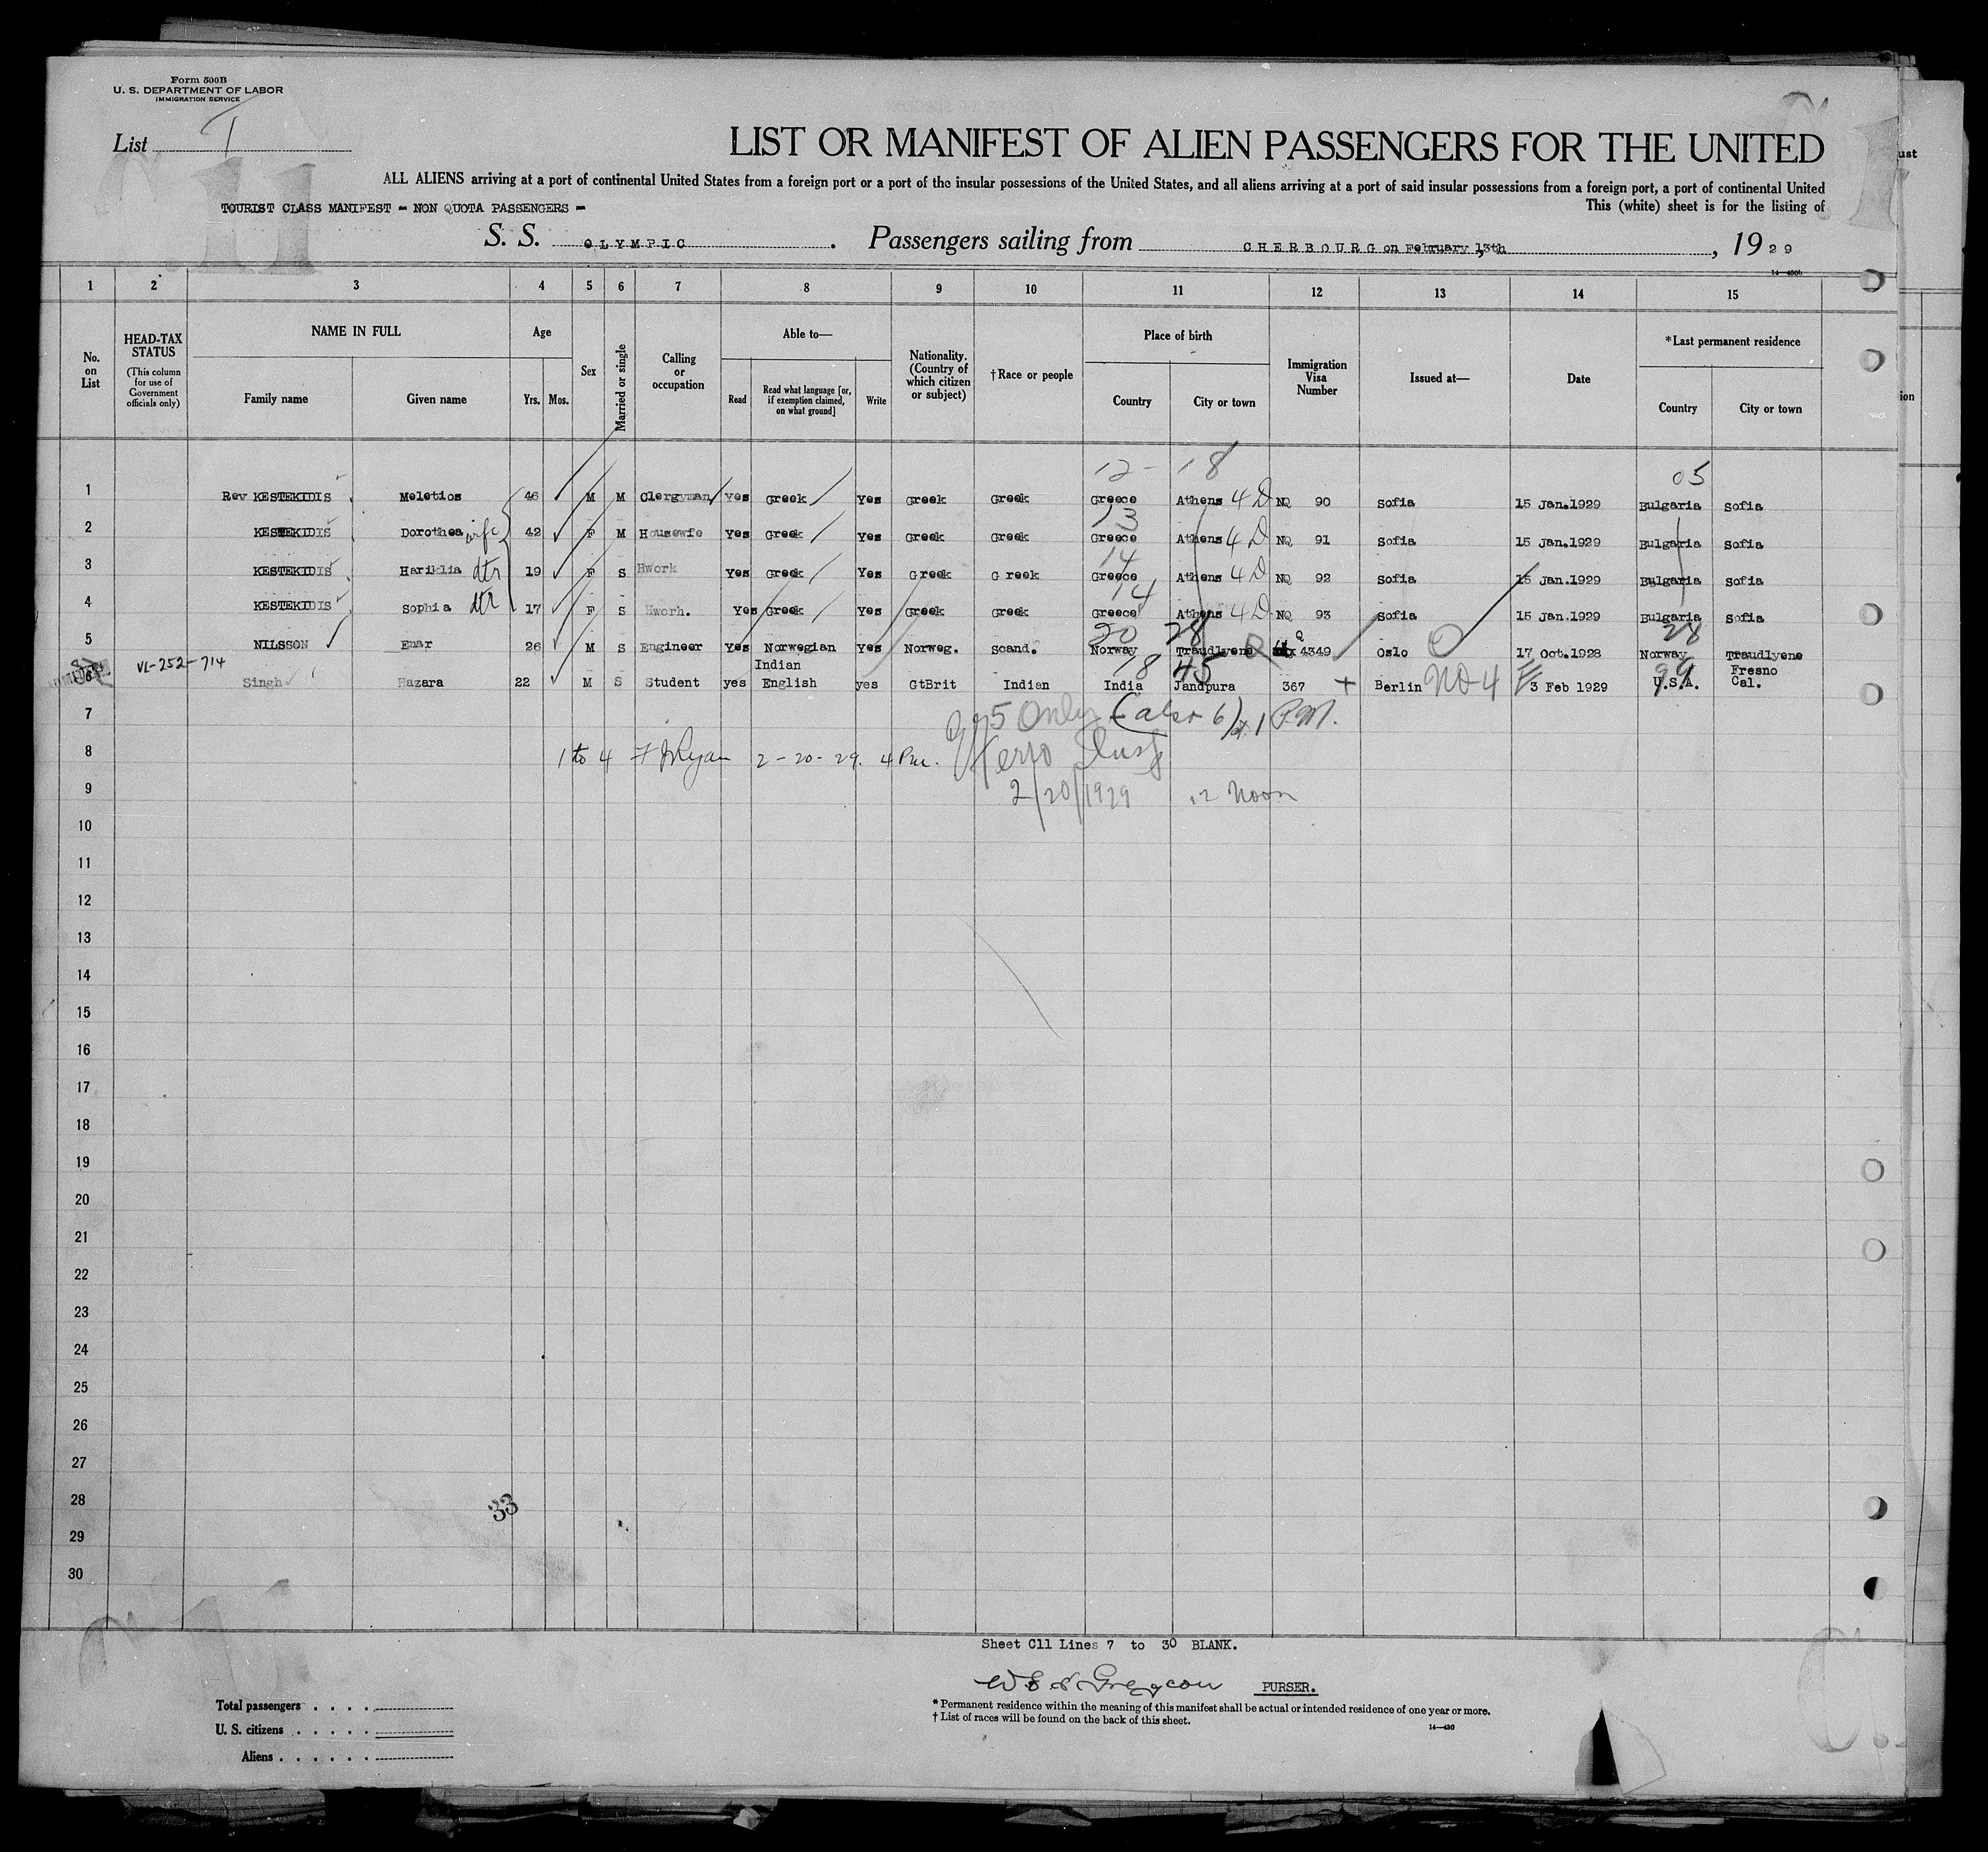 Form 500B
U. S. DEPARTMENT OF LABOR
IMMIGRATION SERVICE
List
LIST OR MANIFEST OF ALIEN PASSENGERS FOR THE UNITED
ALL ALIENS arriving at a port of continental United States from a foreign port or a port of the insular possessions of the United States, and all aliens arriving at a port of said insular possessions from a foreign port, a port of continental United
TOURIST CLASS MANIFEST - NON QUOTA PASSENGERS - This (white) sheet is for the listing of
S. S. OLYMPIC . Passengers sailing from CHERBOURG on February 13th, 1929
14—430b
1 2 3 4 5 6 7 8 9 10 11 12 13 14 15
No. on List
HEAD-TAX STATUS
(This column for use of Government officials only)
NAME IN FULL
Family name Given name
Age
Yrs. Mos.
Sex
Married or single
Calling or occupation
Able to—
Read Read what language [or, if exemption claimed, on what ground] Write
Nationality. (Country of which citizen or subject)
†Race or people
Place of birth
Country City or town
Immigration Visa Number
Issued at—
Date
*Last permanent residence
Country City or town
12 - 18 05
1 Rev KESTEKIDIS Meletios 46 M M Clergyman Yes Greek Yes Greek Greek Greece Athens 4 D NQ 90 Sofia 15 Jan.1929 Bulgaria Sofia
13
2 KESTEKIDIS Dorothea wife 42 F M Housewfe Yes Greek Yes Greek Greek Greece Athens 4 D NQ 91 Sofia 15 Jan.1929 Bulgaria Sofia
14
3 KESTEKIDIS Hariklia dtr 19 F S Hwork Yes Greek Yes Greek Greek Greece Athens 4 D NQ 92 Sofia 15 Jan.1929 Bulgaria Sofia
14
4 KESTEKIDIS Sophia dtr 17 F S Hworh. Yes Greek Yes Greek Greek Greece Athens 4 D NQ 93 Sofia 15 Jan.1929 Bulgaria Sofia
20 28 28
5 NILSSON Enar 26 M S Engineer Yes Norwegian Yes Norweg. Scand. Norway Traudlyene Q 4349 Oslo 17 Oct.1928 Norway Traudlyene
VL-252-714 Indian 18 45 99 Fresno
6 Singh Hazara 22 M S Student yes English yes GtBrit Indian India Jandpura 367 Berlin NO 4 3 Feb 1929 U.S.A. Cal.
7 5 Only (also 6) 1 P.M.
8 1 to 4 F J Ryan 2-20-29. 4 Pm.
9 2/20/1929 12 Noon
10
11
12
13
14
15
16
17
18
19
20
21
22
23
24
25
26
27
28 33
29
30
Sheet C11 Lines 7 to 30 BLANK.
PURSER.
Total passengers
U. S. citizens
Aliens
*Permanent residence within the meaning of this manifest shall be actual or intended residence of one year or more.
† List of races will be found on the back of this sheet.
14—430